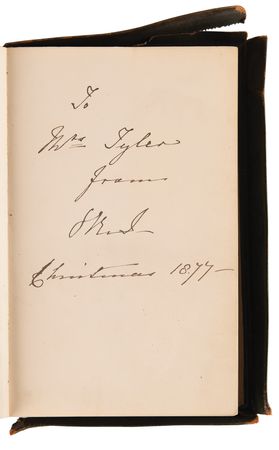 To
Mrs Tyler
from
Christmas 1877-